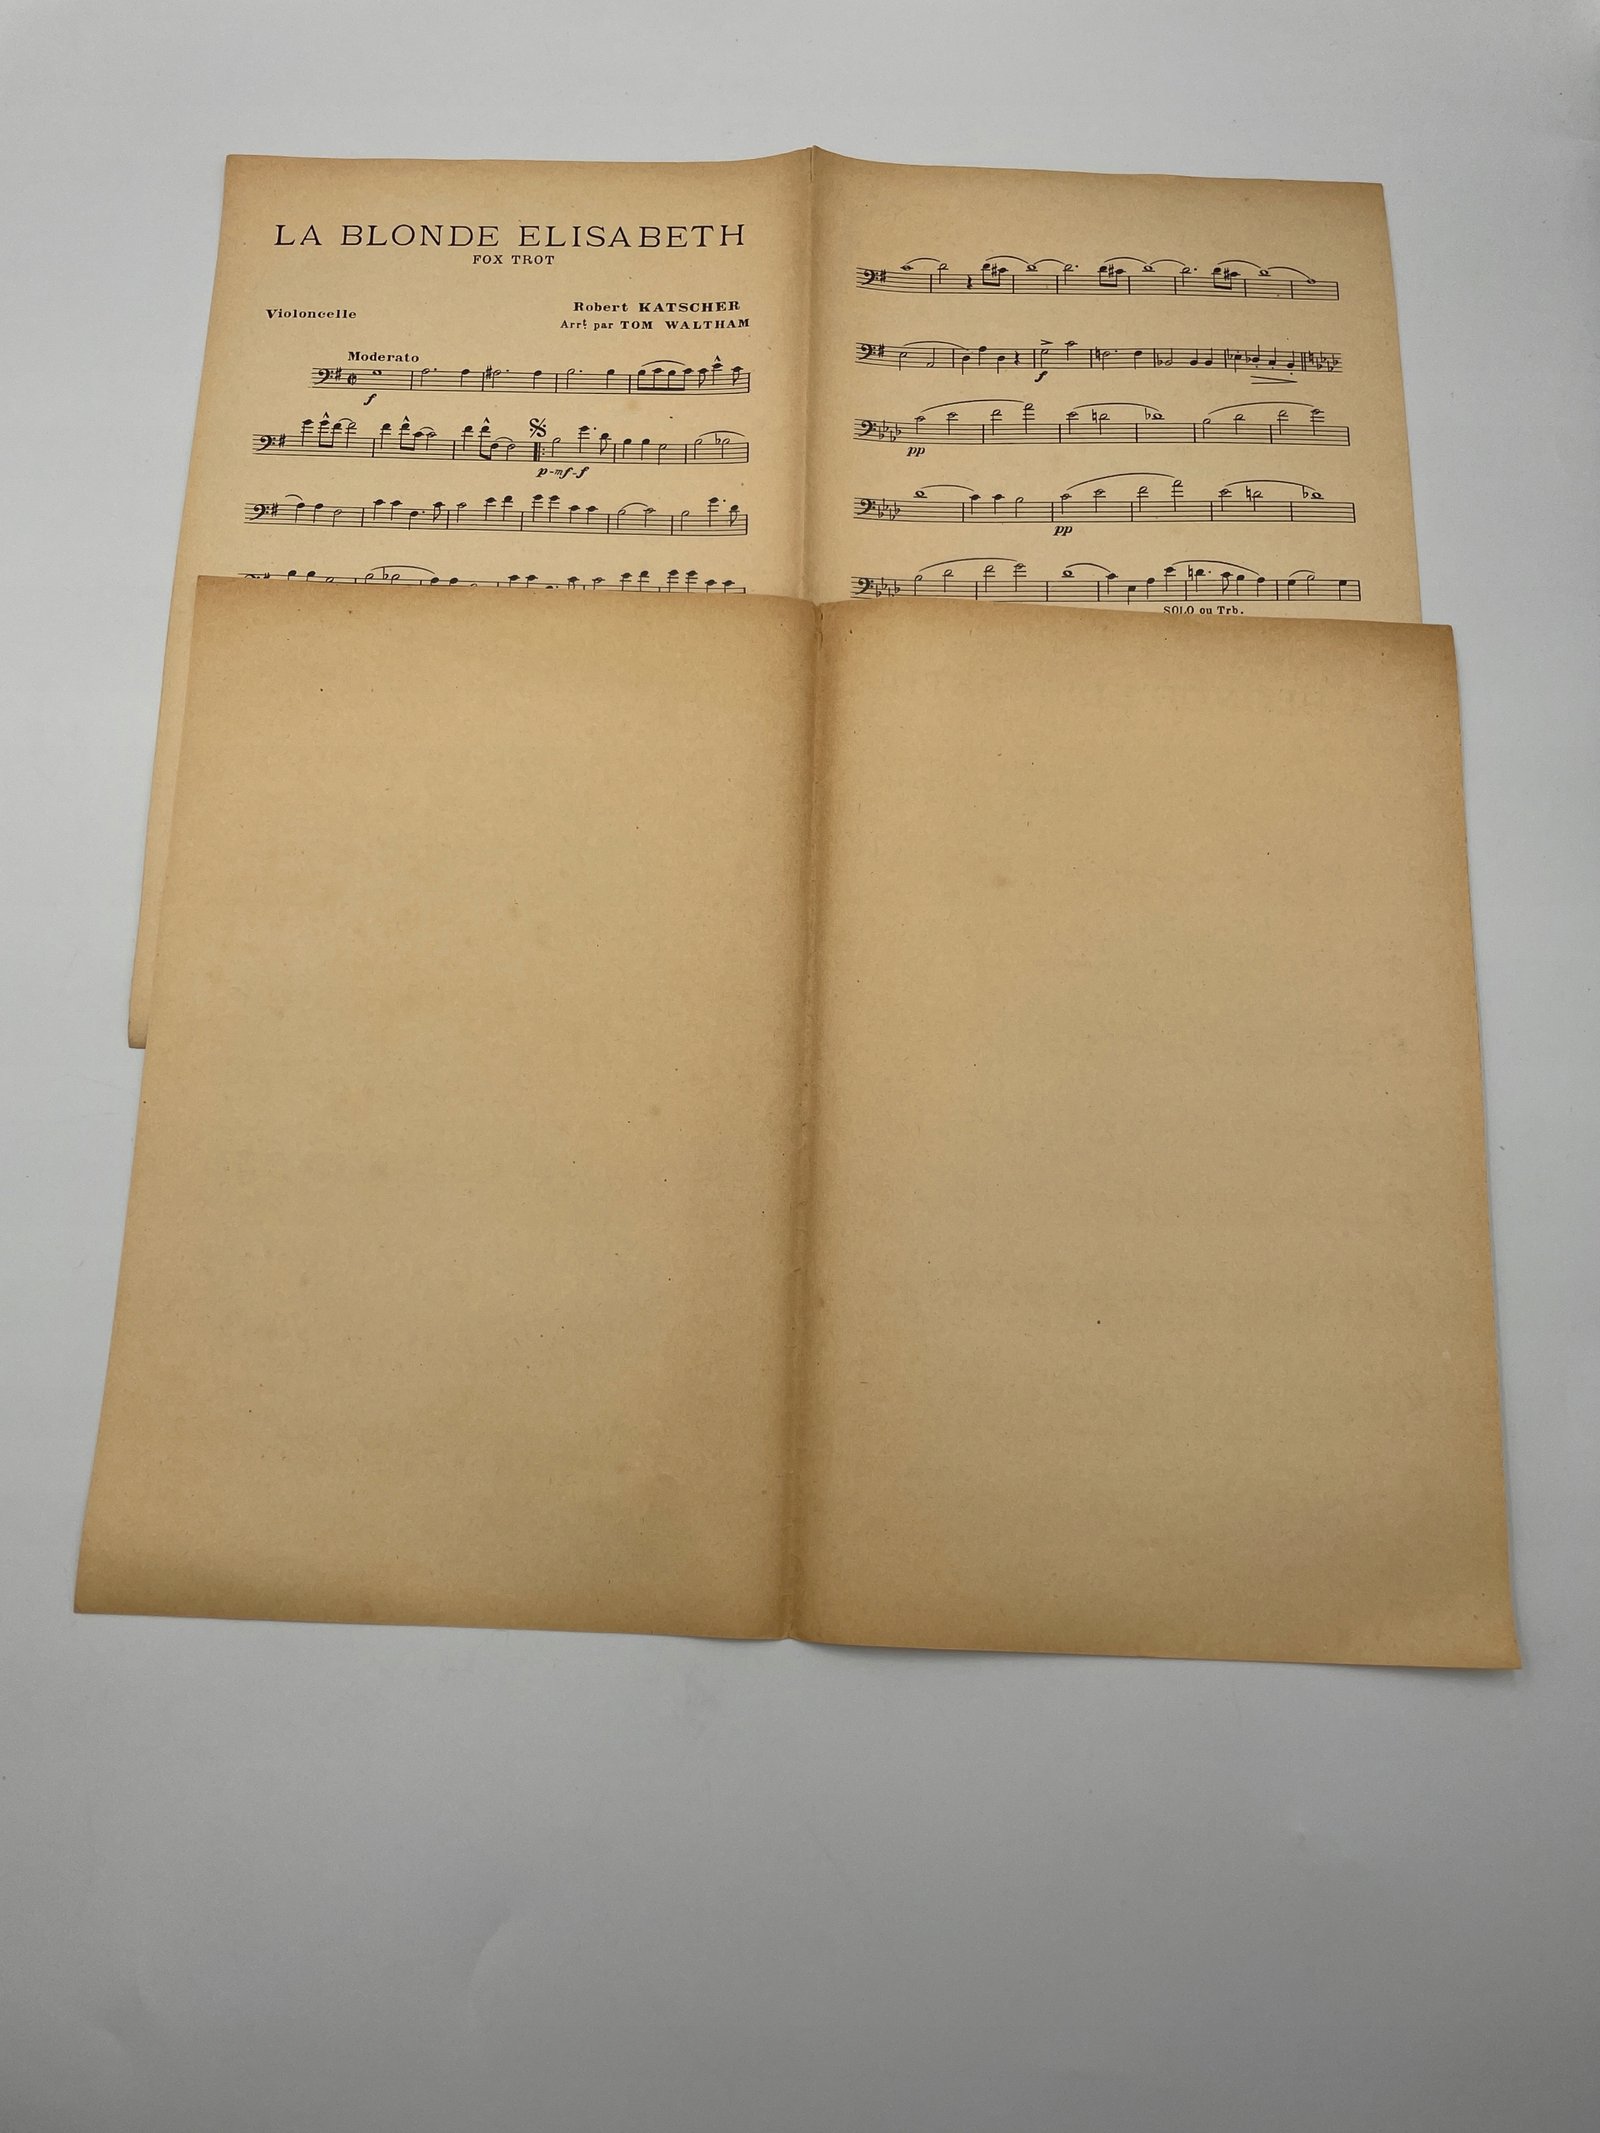 LA BLONDE ELISABETH
FOX TROT
Violoncelle
Robert KATSCHER
Arrt par TOM WALTHAM
Moderato
f
p-mf-f
f
pp
pp
SOLO ou Trb.